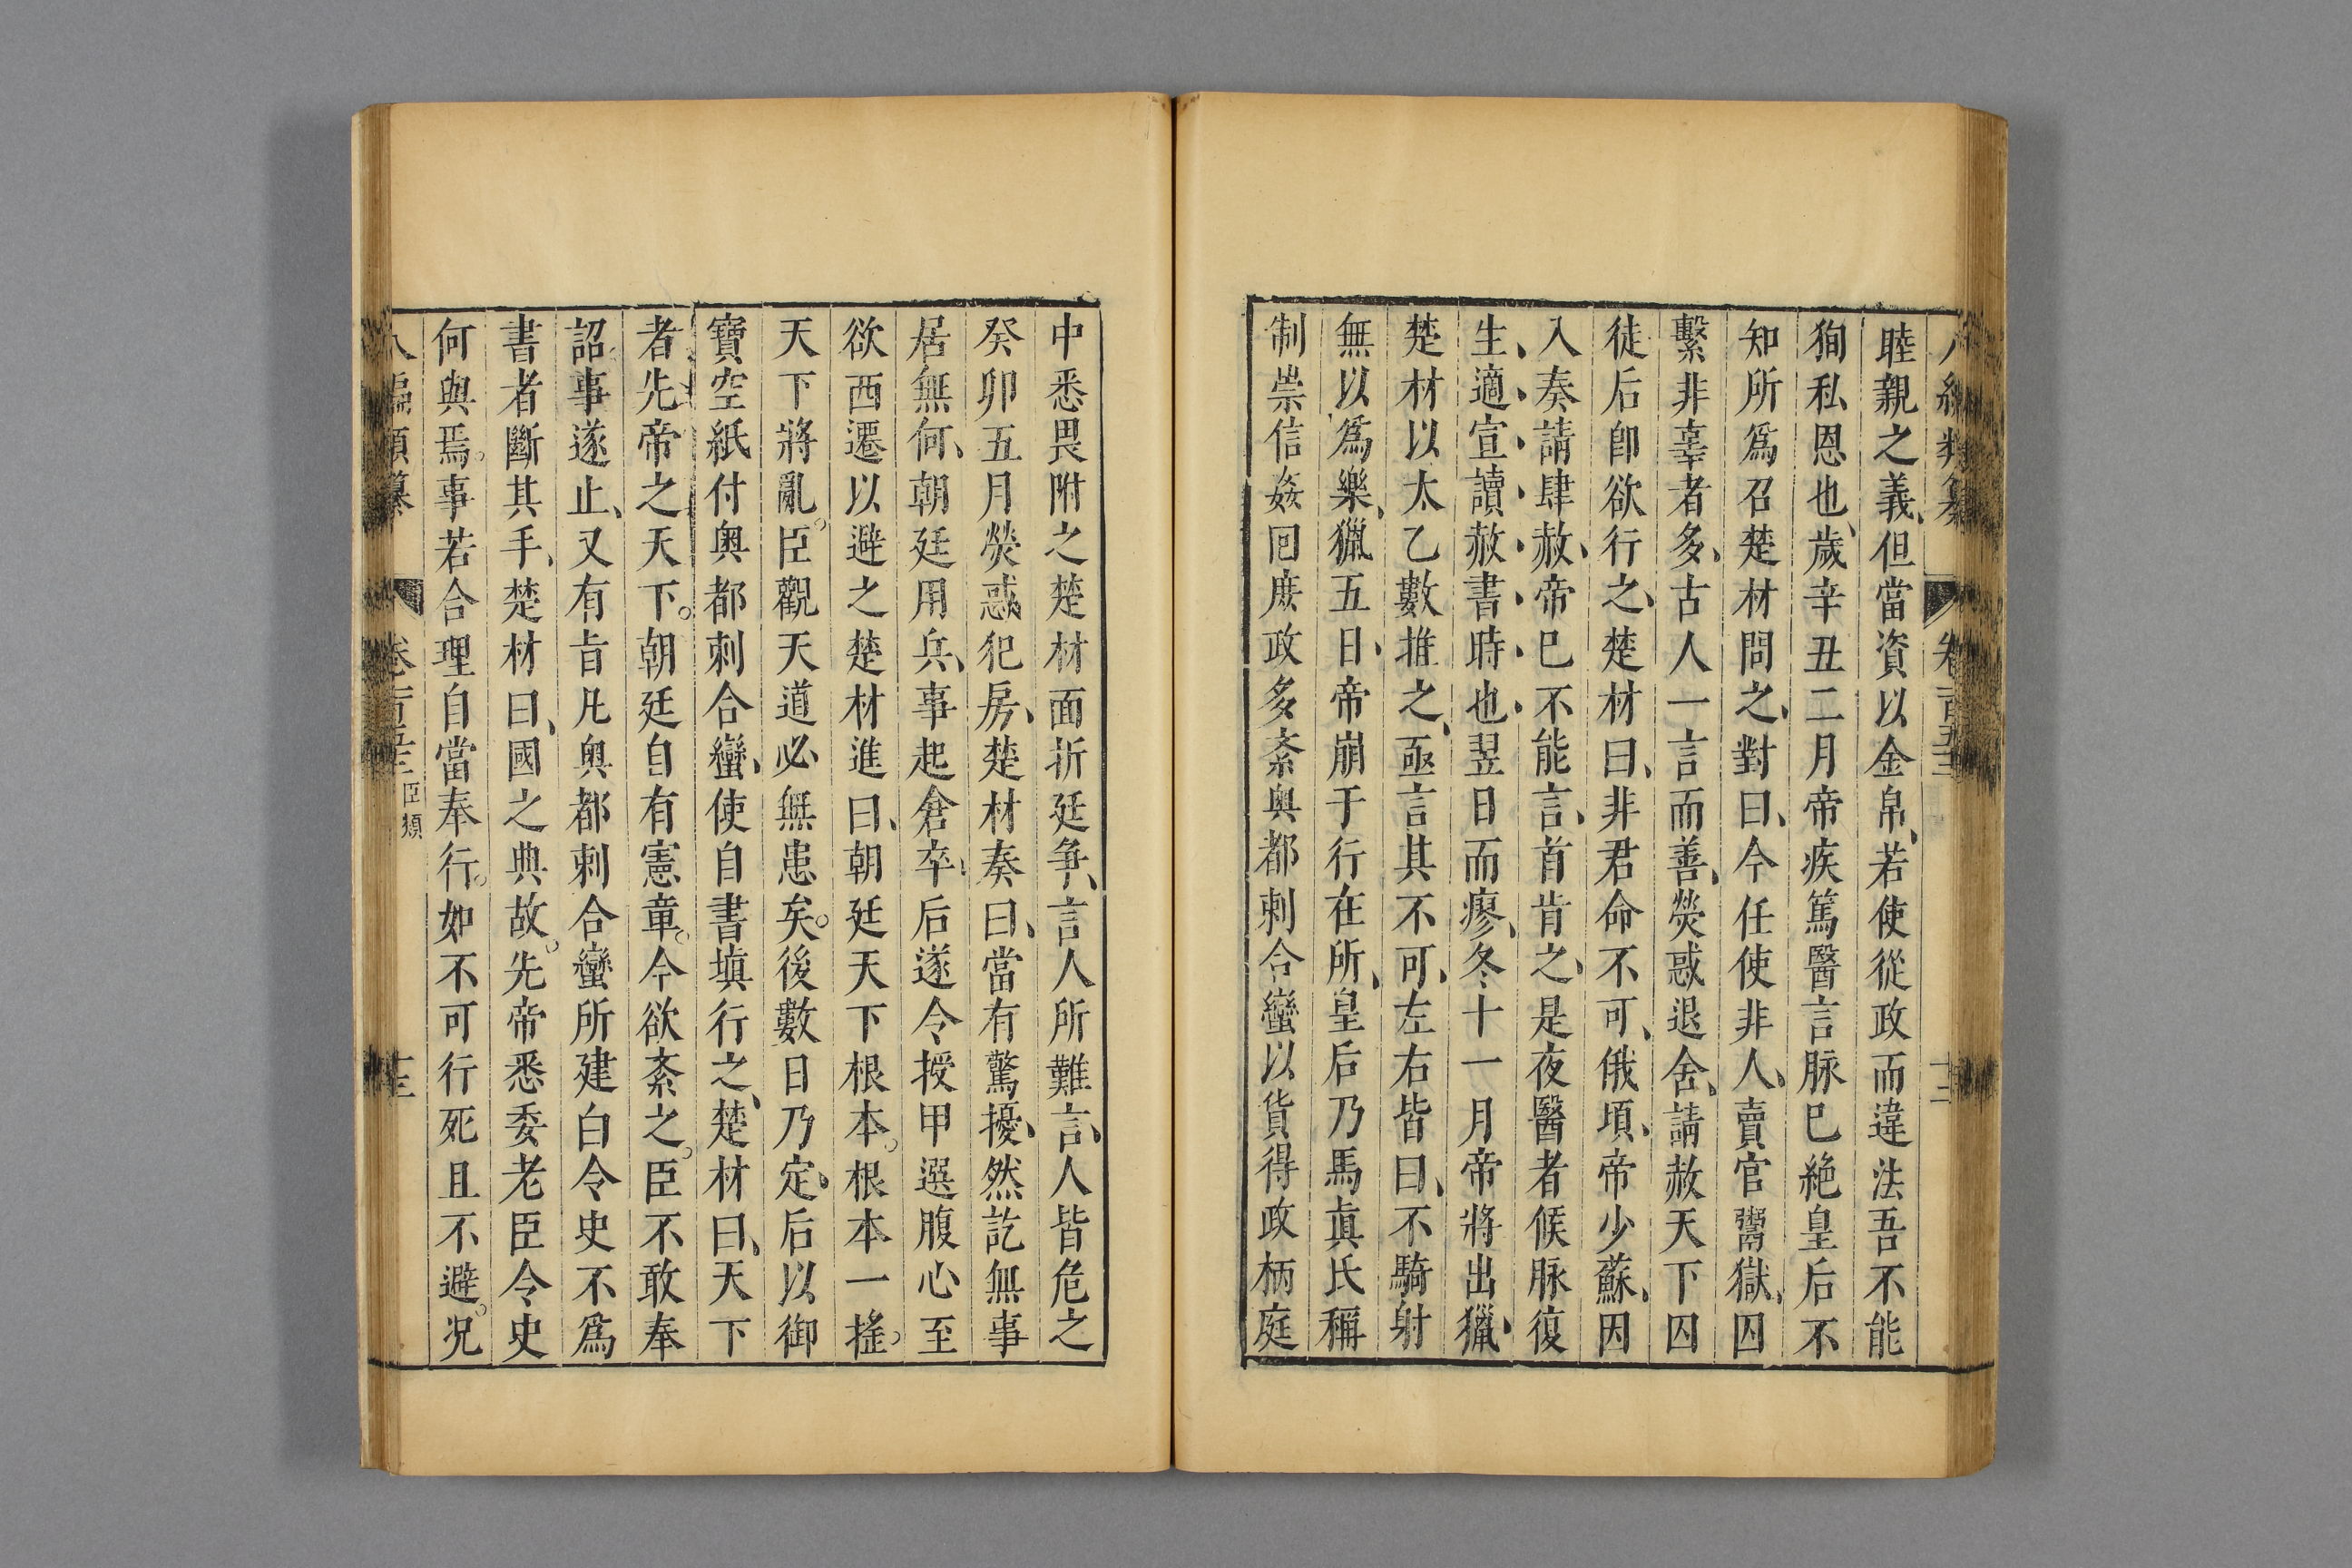 睦親之義、但當資以金帛、若使從政而違法吾不能
狥私恩也、歲辛丑二月帝疾篤醫言脉巳絶皇后不
知所爲召楚材問之、對曰、今任使非人、賣官鬻獄、囚
繫非辜者多、古人一言而善、熒惑退舍、請赦天下囚
徒后卽欲行之、楚材曰、非君命不可、俄頃、帝少蘇、因
入奏請肆赦、帝巳不能言、首肯之、是夜醫者候脉復
生、適、宣、讀、赦、書、時、也、翌日而瘳、冬十一月帝將出獵、
楚材以太乙數推之、亟言其不可、左右皆曰、不騎射
無以爲樂、獵五日、帝崩于行在所、皇后乃馬眞氏稱
制崇信姦回庶政多紊奥都刺合蠻以貨得政柄庭
中悉畏附之楚材面折廷爭、言人所難言、人皆危之
癸卯五月熒惑犯房、楚材奏曰、當有驚擾、然訖無事
居無何、朝廷用兵、事起倉卒、后遂令授甲選腹心至
欲西遷以避之楚材進曰、朝廷天下根本。根本一搖。
天下將亂。臣觀天道必無患矣。後數日乃定、后以御
寶空紙付奥都刺合蠻、使自書塡行之、楚材曰、天下
者先帝之天下。朝廷自有憲章。今欲紊之。臣不敢奉
詔、事遂止、又有旨凡奥都刺合蠻所建白令史不爲
書者斷其手、楚材曰、國之典故。先帝悉委老臣令史
何與焉。事若合理自當奉行。如不可行死且不避。况
八編類纂
卷百五十三
臣類
十三